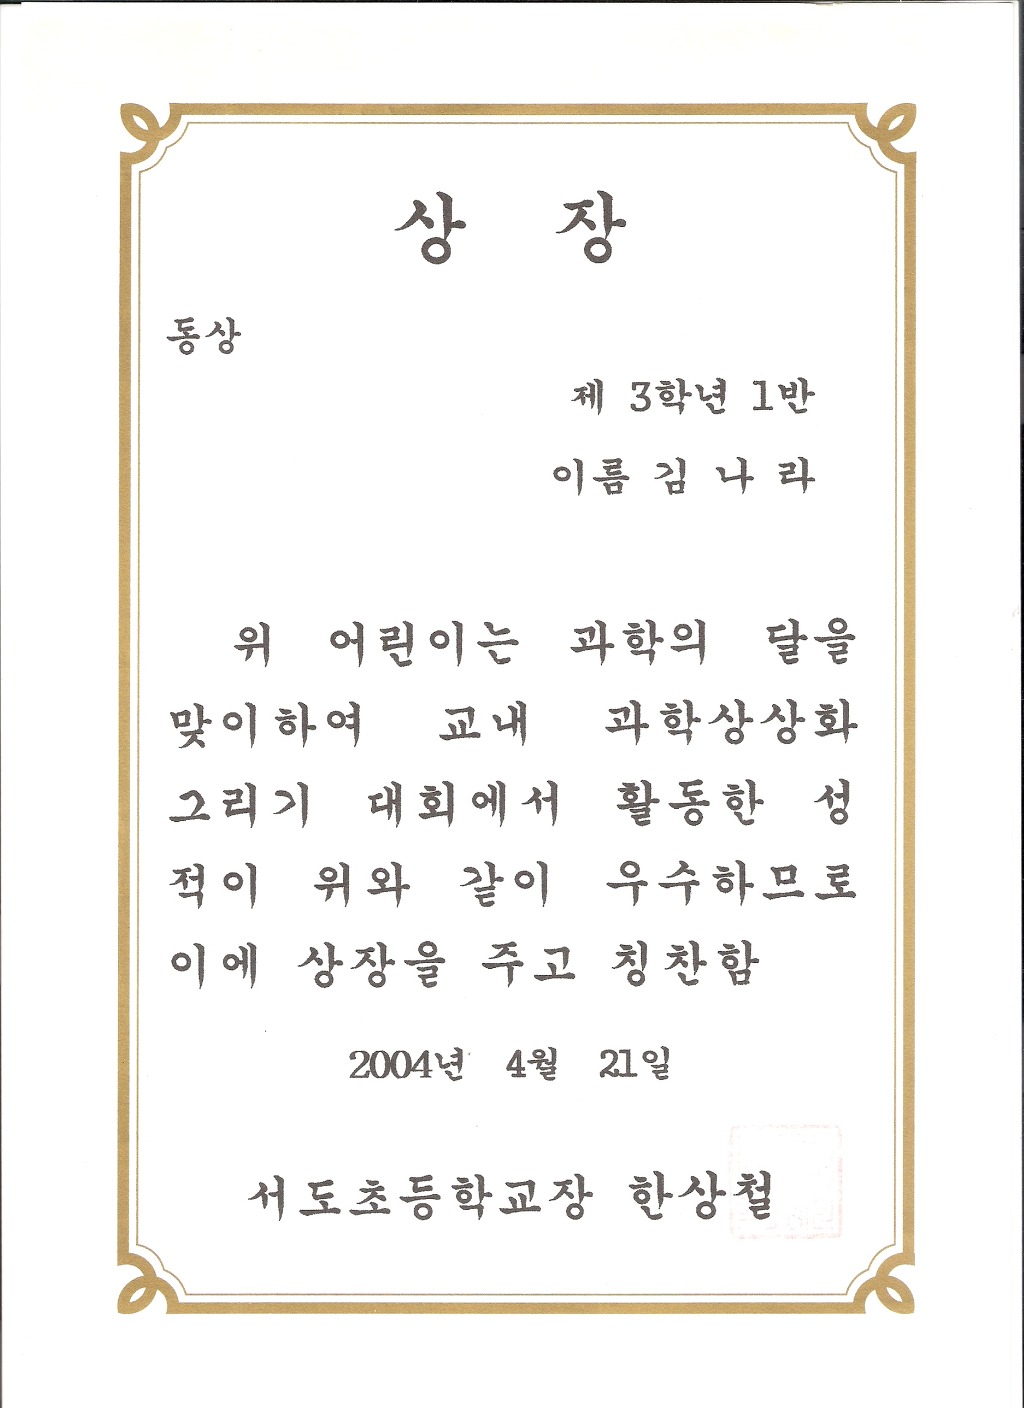 상 장
동상
제 3학년 1반
이름 김 나 라
위 어린이는 과학의 달을
맞이하여 교내 과학상상화
그리기 대회에서 활동한 성
적이 위와 같이 우수하므로
이에 상장을 주고 칭찬함
2004년 4월 21일
서도초등학교장 한상철